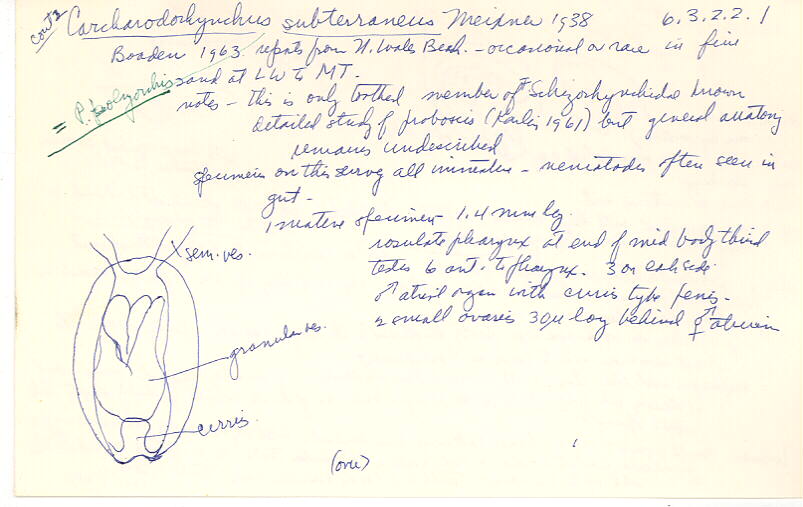 cont 2 Carcharodorhynchus subterraneus Meixner 1938 6.3.2.2.1
Boaden 1963. reports from N. Wales Beach. - occasional or rare in fine
= P. polyorchis sand at LW to MT.
notes - this is only toothed member of Schizorhynchidae known
detailed study of proboscis (Karling 1961) but general anatomy
remains undescribed
specimens on this survey all immature - nematodes often seen in
gut -
1 mature specimen - 1.4 mm long.
rosulate pharynx at end of mid body third
testes 6 ant. to pharynx. 3 on each side
♂ atrial organ with cirrus type penis -
2 small ovaries 30μ long behind ♂ atrium
sem. ves.
granular ves.
cirrus.
(over)